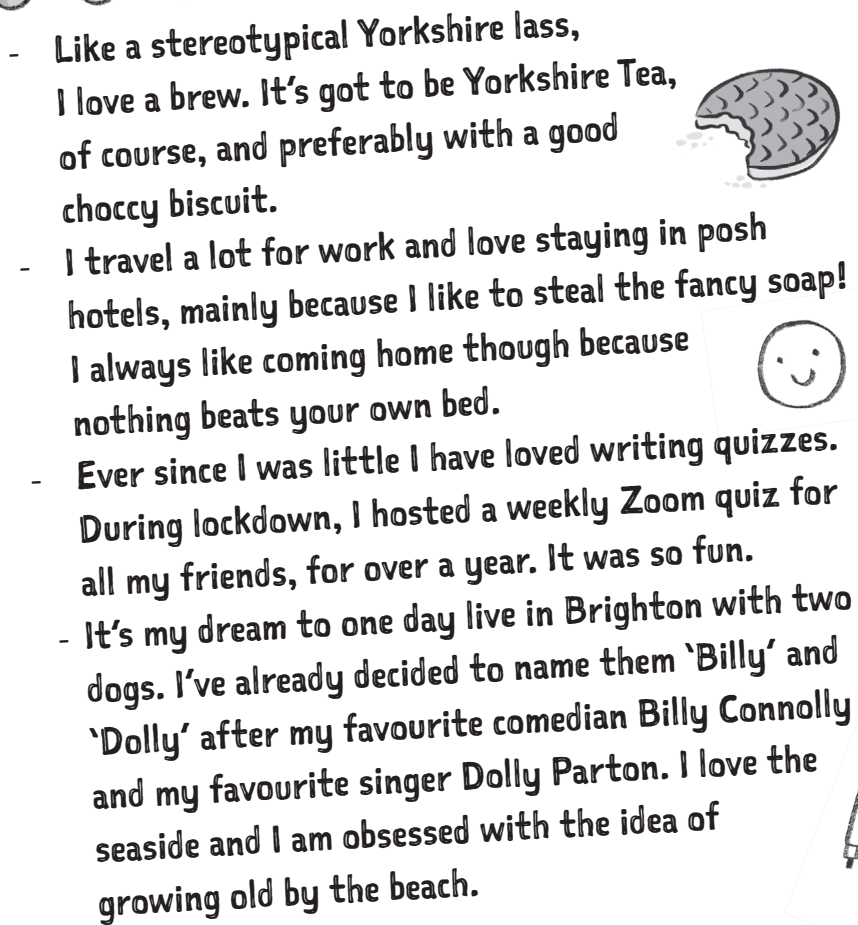 - Like a stereotypical Yorkshire lass,
I love a brew. It's got to be Yorkshire Tea,
of course, and preferably with a good
choccy biscuit.
- I travel a lot for work and love staying in posh
hotels, mainly because I like to steal the fancy soap!
I always like coming home though because
nothing beats your own bed.
- Ever since I was little I have loved writing quizzes.
During lockdown, I hosted a weekly Zoom quiz for
all my friends, for over a year. It was so fun.
- It's my dream to one day live in Brighton with two
dogs. I've already decided to name them ‵Billy′ and
‵Dolly′ after my favourite comedian Billy Connolly
and my favourite singer Dolly Parton. I love the
seaside and I am obsessed with the idea of
growing old by the beach.